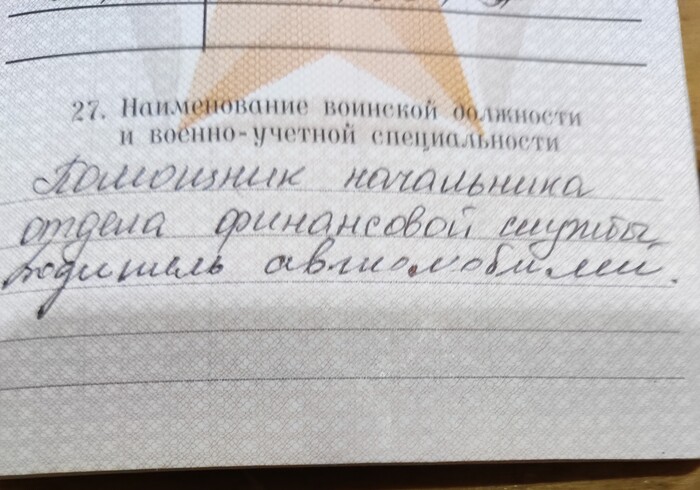 27. Наименование воинской должности
и военно-учетной специальности
Помощник начальника
отдела финансовой службы,
водитель автомобилей.